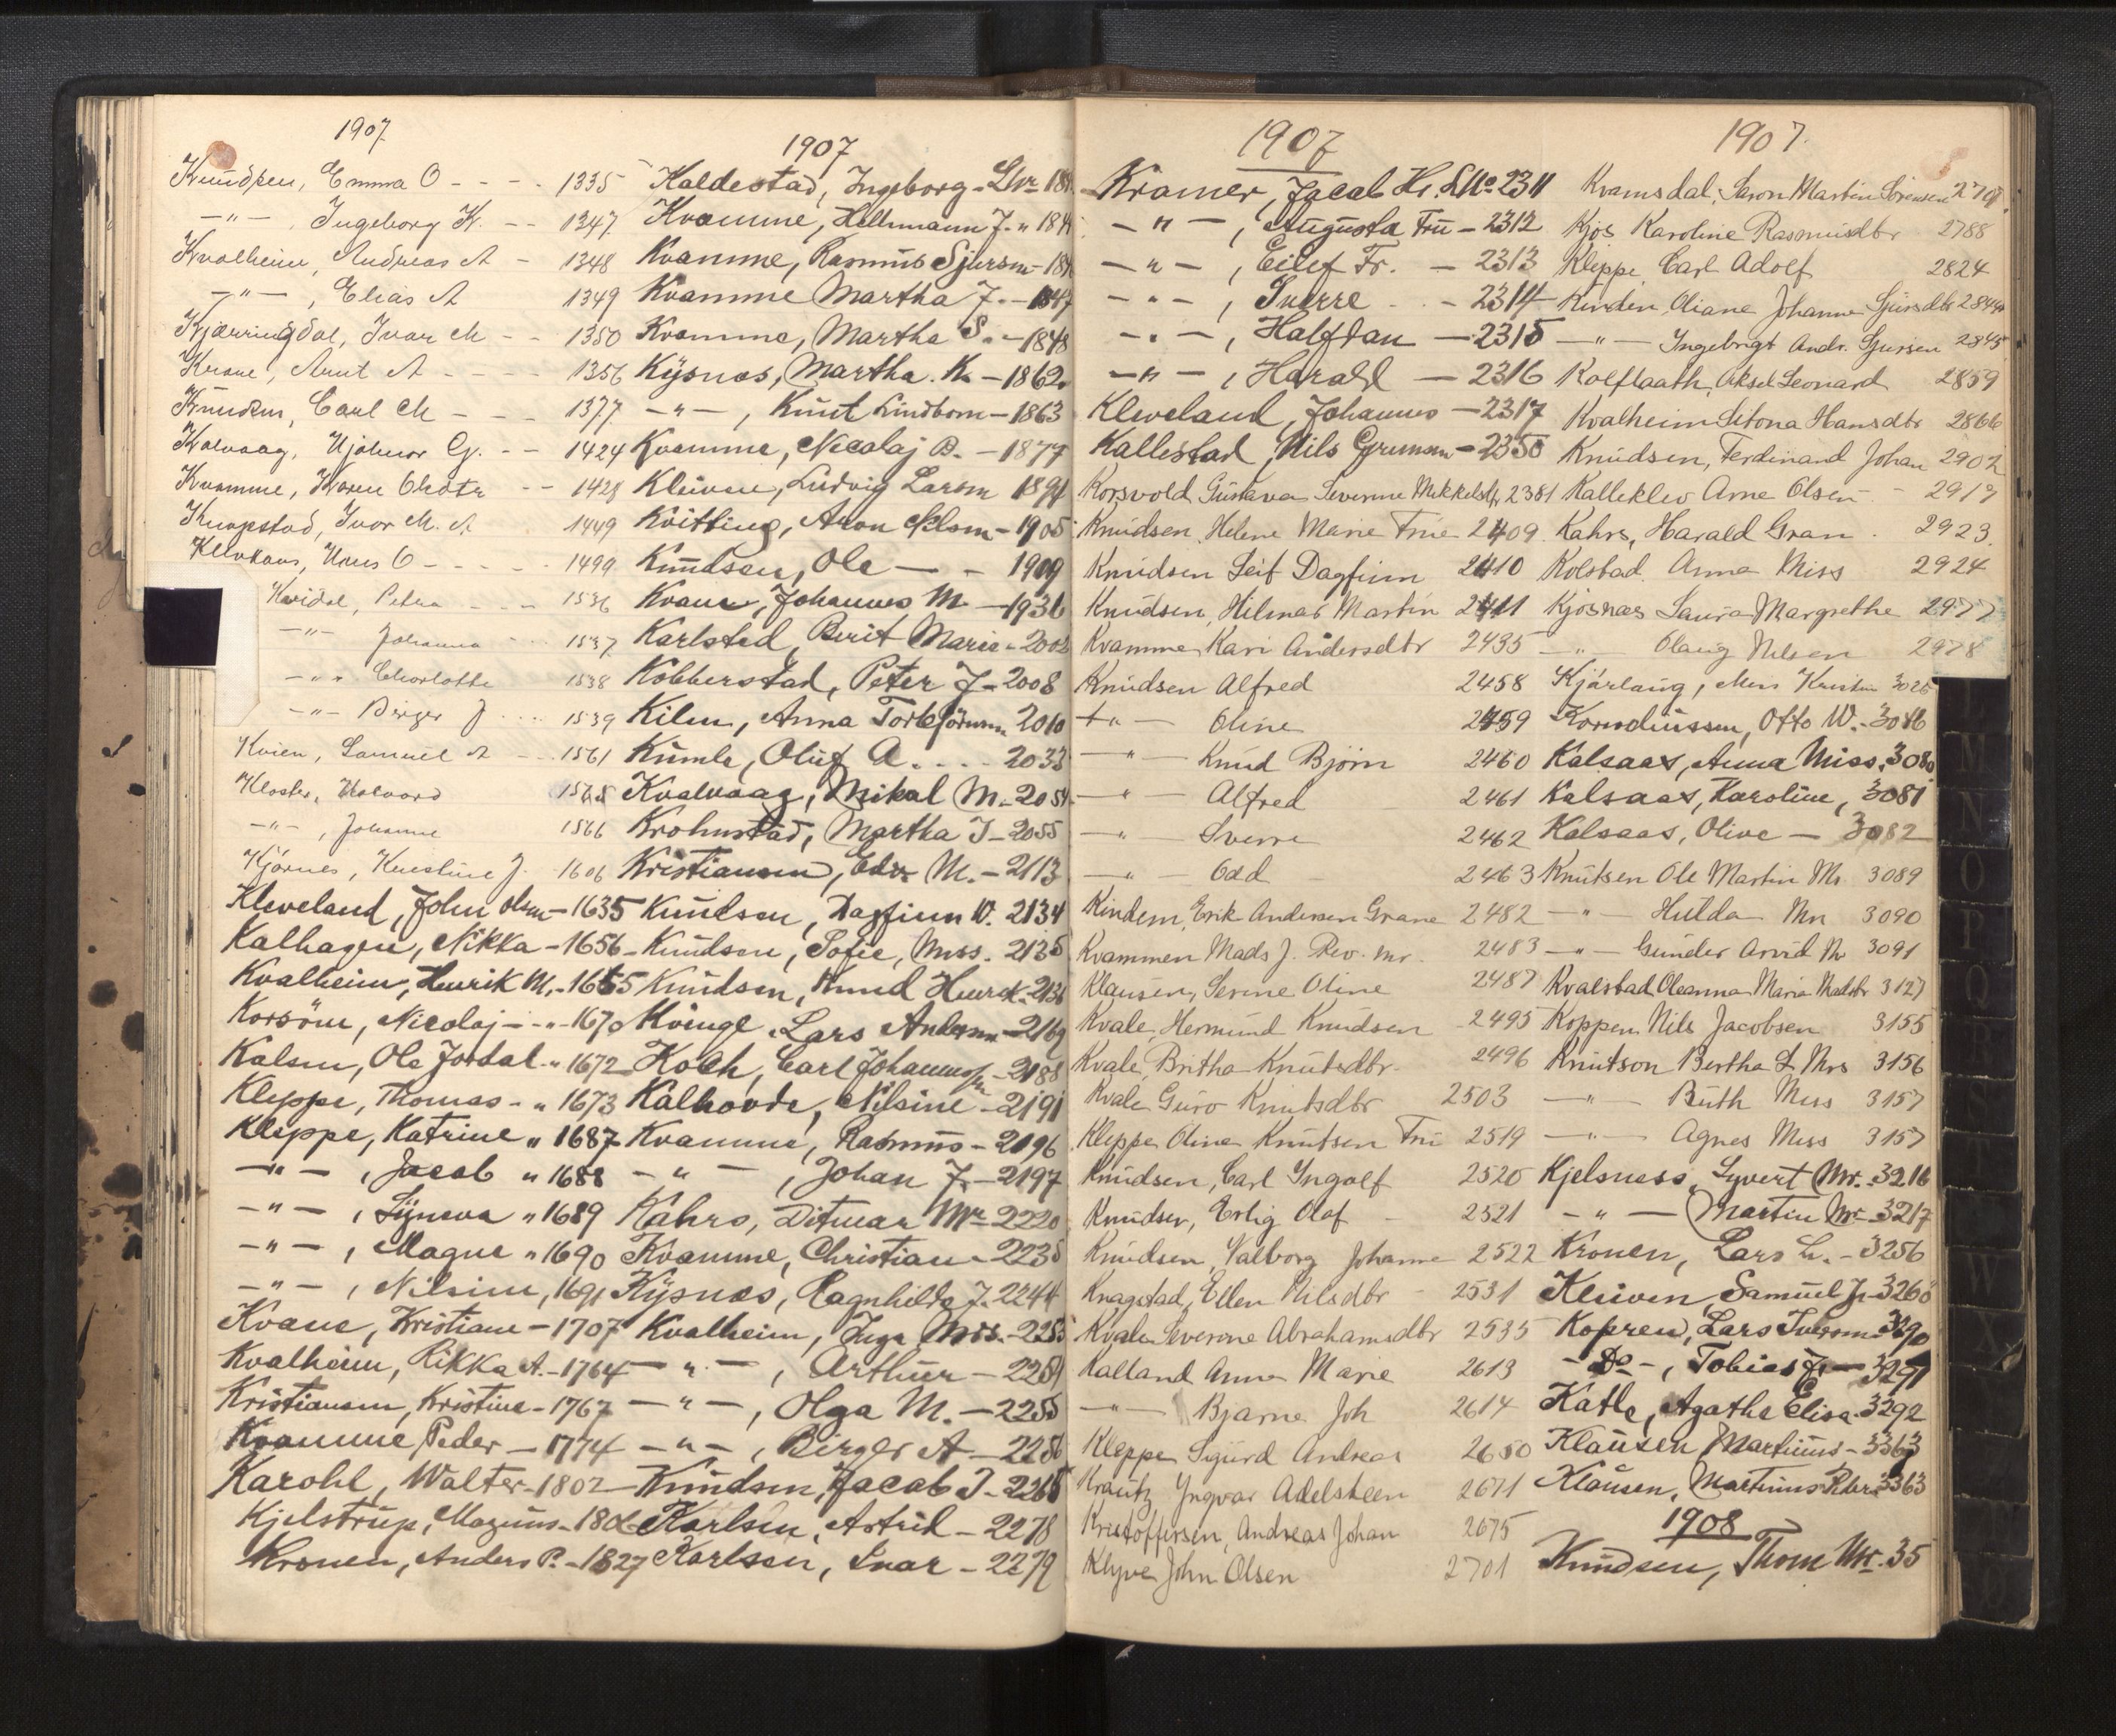 1907
Knudsen, Emma O - - - 1335
-"- Ingeborg K. - - 1347
Kvalheim, Andreas A - 1348
-"- , Elias A 1349
Kjærringdal, Ivar M - - 1350
Krane, Arnt A - - - - 1356
Knudsen, Carl M - - - 1377
Kalvaag, G. - - 1424
Kvamme, Karen - - 1428
Knapstad, Ivar M. A 1449
Hans O - - - - - 1499
Petra - - - 1536
-"- Johanna 1537
-"- Charlotte 1538
-"- Birger J 1539
Kvien, Samuel A - - 1561
Kloster, Halvard 1565
-"- , Johanne 1566
Kjörnes, J. 1606
Kleveland, John Olsen - 1635
Kalhagen, Nikka - 1656
Kvalheim, Henrik M. - 1665
Korsöm, Nicolaj - - " - 1670
Kalsen, Ole Jordal - " 1672
Kleppe, Thomas - " 1673
Kleppe, Katrine " 1687
-"- , Jacob " 1688
-"- , Syneva " 1689
-"- , Magne " 1690
-"- , Nilsine, 1691
Kvane, Kristiane - 1707
Kvalheim, Rikka A. - 1764
Kristiansen, Kristine - 1767
Kvamme, Peder - 1774
Karohl, Walter - 1802
Kjelstrup, Magnus - 180
Kronen, Anders P. - 1827
1907
Kaldestad, Ingeborg - 18
Kvamme, Hellmann J. " 184
Kvamme, Rasmus Sjursen - 184
Kvamme Martha J. - 1847
Kvamme, Martha S. - 1848
Kysnes, Martha. K. - 1862.
-"- , Knut Lindbom - 1863
Kvamme, Nicolaj B. - 1877
Kleiven, Ludvig Larsen 1894
Kvitting, Aron Nilsen - 1905
Knudsen, Ole - - 1909
Kvane, Johannes M - 1936
Karlsted, Berit Marie - 2002
Kobberstad, Peter J - 2008
Kilen, Anna 2010
Kumle, Oluf A. . . . 2033
Kvalvaag, Mikal M. - 2054
Krohnstad, Martha J - 2055
Kristiansen, Edv. M. - 2113
Knudsen, Dagfinn W. 2134
Knudsen, Sofie, Miss. 2135
Knudsen, Knud Henrik - 2136
Kvinge, Lars Andersen - 2169
Koch, Carl Johannessen - 2188
Kalhovde, Nilsine - 2191
Kvamme, Rasmus - 2196
-"- , Johan J. - 2197
Kahrs, Ditmar Mr - 2220
Kvamme, Christian - 2235
Kysnes, Ragnhilda J. 2244
Kvalheim, Inga Mrs. - 2253
-"- , Arthur - 2254
-"- , Olga M. - 2255
-"- , Birger A - 2256
Knudsen, Jacob J - 2265
Karlsen, Astrid - 2278
Karlsen, Ivar - 2279
1907
Kramer, Jacob Hr. LNo. 2311
-"- , Augusta Fru - 2312
-"- , Eilef Fr. - 2313
-"- , Sverre - - 2314
-"- , Halfdan - 2315
-"- , Harald - 2316
Kleveland, Johannes - 2317
Kallestad, Nils - 2350
Korsvold Gustava Severine Mikkelsdtr, 2381
Knudsen, Helene Marie Frue 2409
Knudsen Leif Dagfinn 2410
Knudsen, Hilmar Martin 2411
Kvamme, Kari Andersdtr 2435
Knudsen Alfred 2458
+"- Oline 2459
-"- Knud Björn 2460
-"- Alfred 2461
-"- Sverre 2462
-"- Odd 2463
Kindem, Erik Andersen Grane 2482
Kvammen Mads J. Rev. mr. 2483
Klausen, Serine Oline 2487
Kvale, Hermund Knudsen 2495
Kvale, Britha Knutsdtr 2496
Kvale, Guro Knutsdtr 2503
Kleppe Oline Knutsen Fru 2519
Knudsen, Carl Ingolf 2520
Knudsen, Erlig Olaf 2521
Knudsen, Valborg Johanne 2522
Knagstad, Ellen Nilsdtr 2531
Kvale Severine Abrahamsdtr 2535
Kalland Anna Marie 2613
-"- Bjarne Joh 2614
Kleppe Sigurd Andreas 2650
Krautz, Yngvar Adelsteen 2671
Kristoffersen, Andreas Johan 2675
Klyve John Olsen 2701
1907.
Kvamsdal, Saron Martin Sörensen 2707.
Kjos Karoline Rasmusdtr 2788
Kleppe, Carl Adolf 2824
Kinden, Oliane Johanne Sjursdtr 2844
-"- Ingebrigt Andr. Sjursen 2845
Kolflaath, Aksel Leonard 2859
Kvalheim Hansdtr 2866
Knudsen, Ferdinand Johan 2902
Kalleklev Arne Olsen - 2919
Kahrs, Harald Gran . 2923.
Kolstad. Anna Miss 2924
Kjosnæs Laura Margrethe 2977
-"- Olaug Nilsen 2978
Kjärlaug, Miss Kristin 3025
Korneliussen, Otto W. - 3086
Kalsaas, Anna Miss. 3080
Kalsaas, Karoline, 3081
Kalsaas, Olive - 3082
Knutsen Ole Martin Mr. 3089
-"- Hulda Mrs 3090
-"- Gunder Arvid Mr 3091
Kvalstad Oleanna Maria Madsdtr 3127
Koppen Nils Jacobsen 3155
Knutson Bertha L Mrs 3156
-"- Ruth Miss 3157
-"- Agnes Miss 3157
Kjelsness, Syvert Mr. - 3216
-"- Martin Mr - 3217
Kronen, Lars L. - 3256
Kleiven, Samuel J. - 3260
Kopren, Lars Iversen - 3290
- Do -, Tobias J. - 3291
Katle, Agathe Elisa. 3292
Klausen Martinus - 3363
Klausen, Martinus Peder 3363
1908
Knudsen, Thom Mr. 35
M
N
O
P
Q
R
W
X